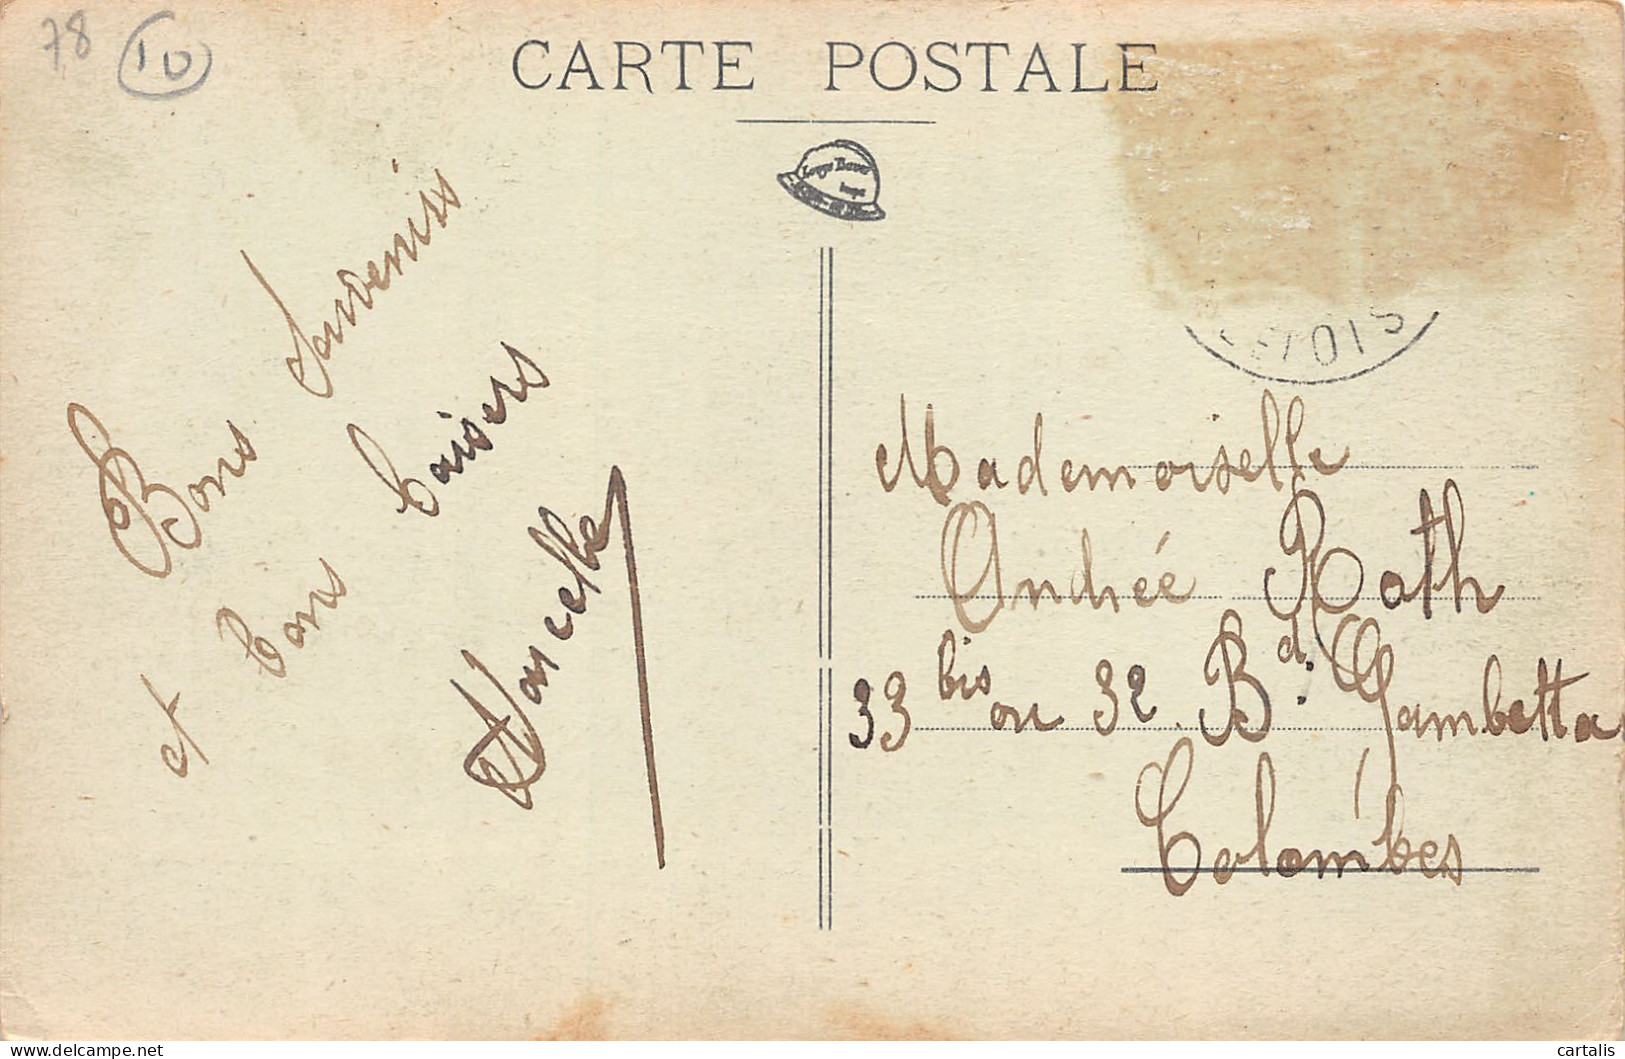 78
10
CARTE POSTALE
Bons Souvenirs
et bons baisers
Marcelle
Mademoiselle
Andrée Roth
33 bis ou 32 Bd. Gambetta
Colombes
cartalis